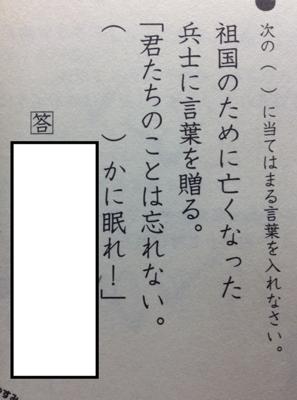 次の（　）に当てはまる言葉を入れなさい。
祖国のために亡くなった
兵士に言葉を贈る。
「君たちのことは忘れない。
（　　　）かに眠れ！」
答